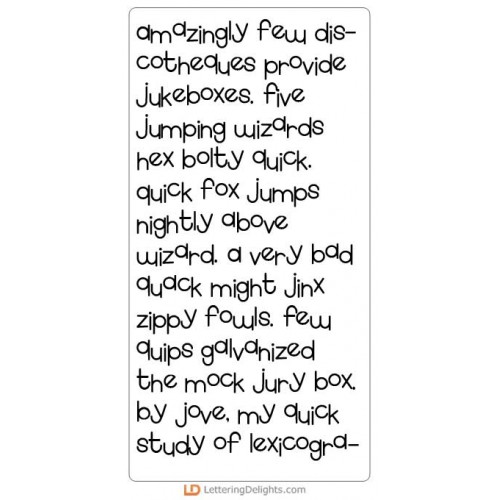 amazingly few dis-
cotheques provide
jukeboxes. five
jumping wizards
hex bolty quick.
quick fox jumps
nightly above
wizard. a very bad
quack might jinx
zippy fowls. few
quips galvanized
the mock jury box.
by jove, my quick
study of lexicogra-
LD LetteringDelights.com